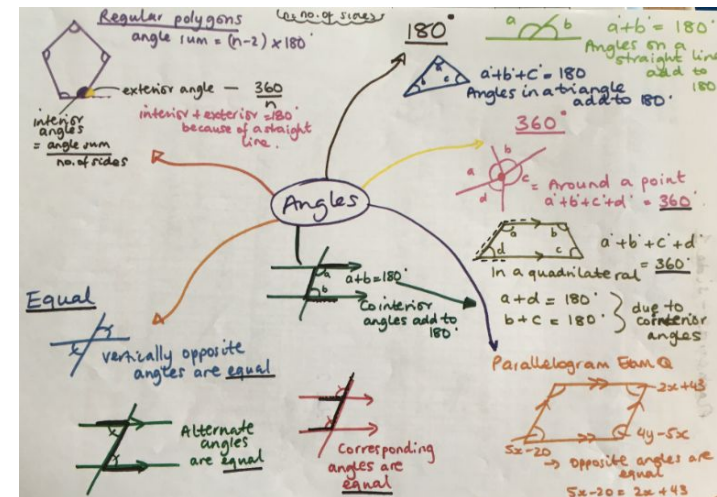 Regular polygons
(n = no. of sides)
angle sum = (n-2) × 180°
exterior angle — 360/n
interior + exterior = 180°
because of a straight
line.
interior
angles
= angle sum
no. of sides
180°
a b
a°+b° = 180°
Angles on a
straight line
add to
180
a b c
a°+b°+c° = 180
Angles in a triangle
add to 180°
360°
a b c d
= Around a point
a°+b°+c°+d° = 360°
a b c d
a°+b°+c°+d°
= 360°
in a quadrilateral
a+d = 180°
b+c = 180°
due to
cointerior
angles
Angles
a
b
a+b=180°
Cointerior
angles add to
180°
Equal
x x
vertically opposite
angles are equal
x x
Alternate
angles
are equal
Corresponding
angles are
equal
Parallelogram Exam Q
2x+43
4y-5x
5x-20
→ opposite angles are
equal
5x-20 = 2x+43